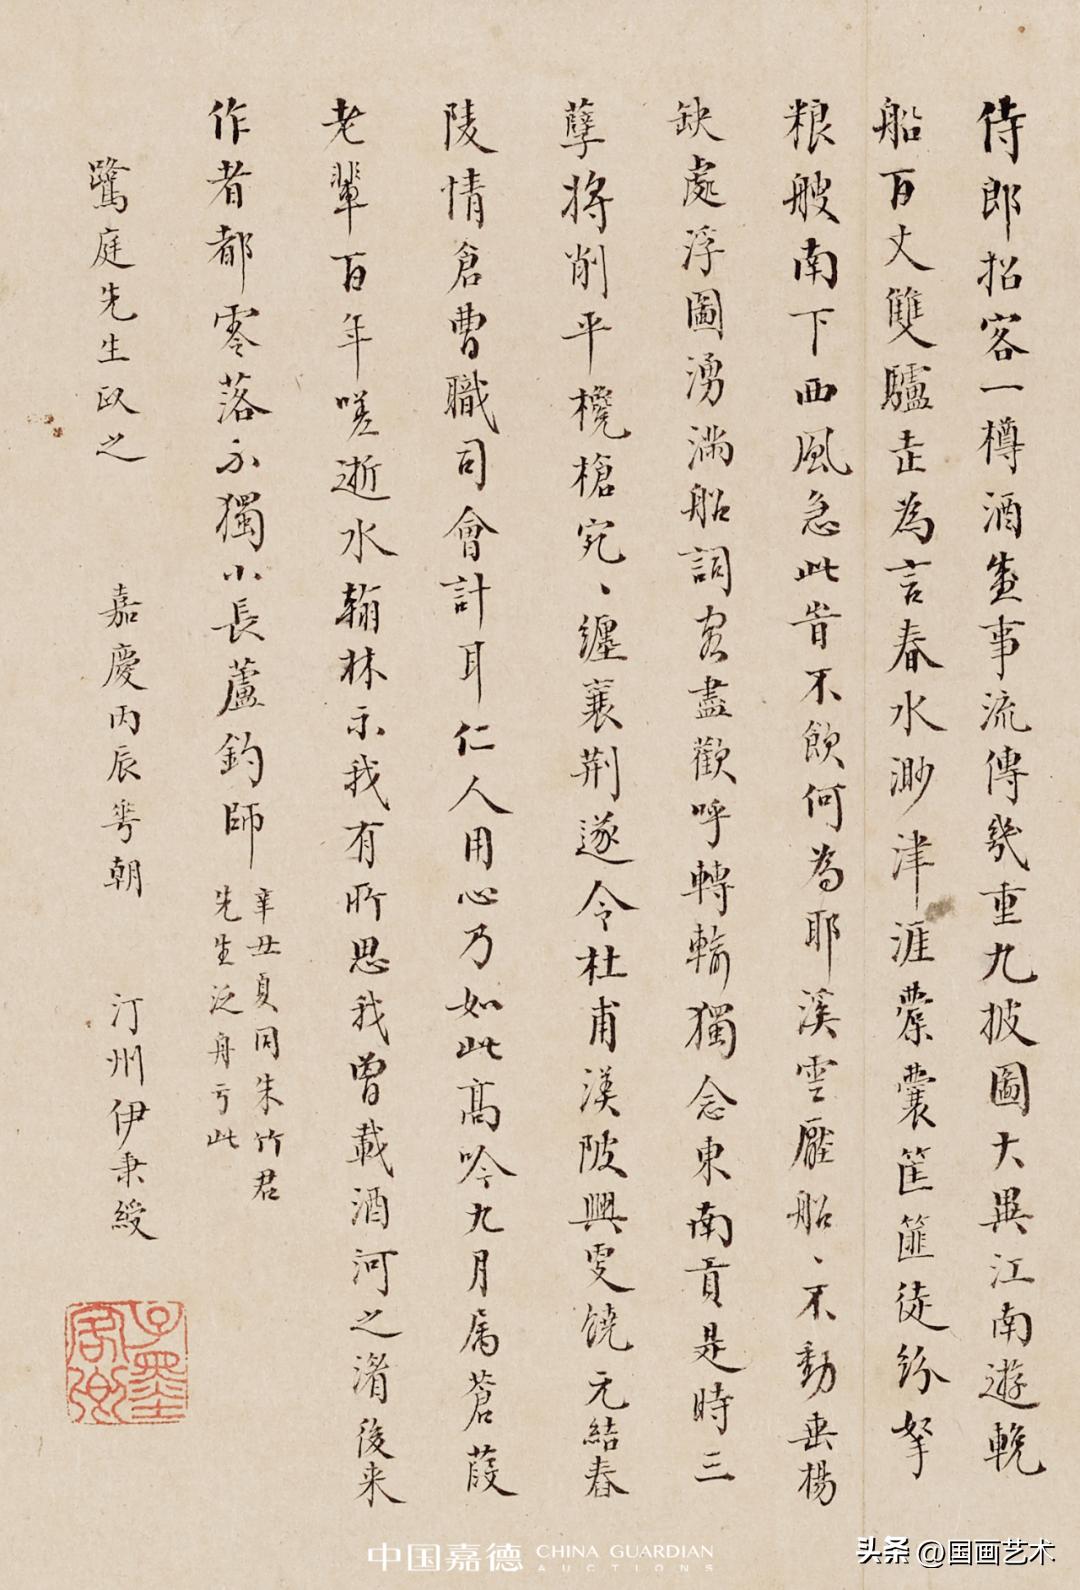 侍郎招客一樽酒盛事流傳幾重九披圖大異江南遊輓
船百丈雙驢走為言春水渺津涯橐囊筐篚徒紛拏
粮艘南下西風急此皆不飲何為耶溪雲壓船、不動垂楊
缺處浮圖湧滿船詞客盡歡呼轉輸獨念東南貢是時三
孽將削平欃槍宛、纏襄荆遂令杜甫渼陂興變饒元結舂
陵情倉曹職司會計耳仁人用心乃如此高吟九月屬蒼葭
老輩百年嗟逝水翰林示我有所思我曾載酒河之渚後来
作者都零落不獨小長蘆釣師
辛丑夏同朱竹君
先生泛舟于此
鷺庭先生政之
嘉慶丙辰花朝
汀州伊秉綬
中国嘉德 CHINA GUARDIAN
AUCTIONS
头条 @国画艺术